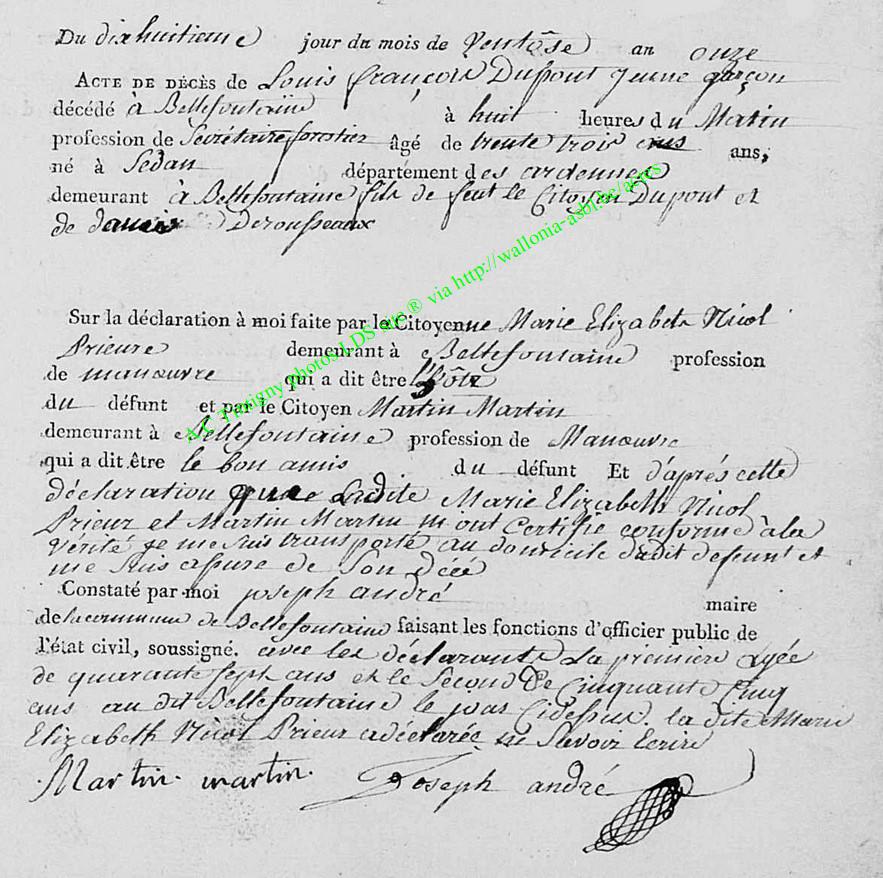 Du dixhuitieme jour du mois de Ventôse an onze
ACTE DE DÉCÈS de Louis françois Dupont jeune garçon
décédé à Bellefontaine à huit heures du Matin
profession de Secrétaire forestier âgé de trente trois ans ans,
né à Sedan département des ardennes
demeurant à Bellefontaine fils de feut le Citoyen Dupont et
de Derousseaux
Sur la déclaration à moi faite par le Citoyenne Marie Elizabeth Nicol
Prieure demeurant à Bellefontaine profession
de manœuvre qui a dit être l'hôte
du défunt et par le Citoyen Martin Martin
demeurant à Bellefontaine profession de Manœuvre
qui a dit être le bon amis du défunt Et d'aprés cette
déclaration que Ladite Marie Elizabeth Nicol
Prieur et Martin Martin m ont Certifie conforme à la
Vérité je me suis transporté au domicile dudit defunt et
me suis assure de Son décé
Constaté par moi joseph andré maire
de la commune de Bellefontaine faisant les fonctions d'officier public de
l'état civil, soussigné. avec les déclarants La premiere agée
de quarante Sept ans et le Second De Cinquante Cinq
ans au dit Bellefontaine le jour Cidessus. la dite Marie
Elizabeth Nicol Prieur a déclarée ne Savoir Ecrire
Martin martin. Joseph andré
A.C. Tintigny photos LDS site ® via http://wallonia-asbl.be/actes